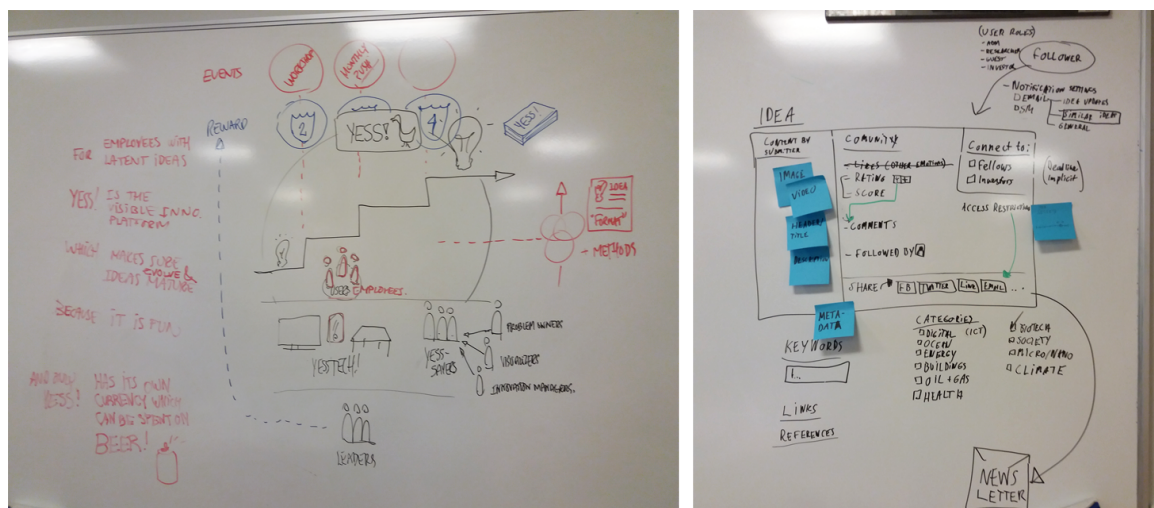 EVENTS
WORKSHOP
MONTHLY
PUSH
REWARD
2
YESS!
4
YESS!
FOR EMPLOYEES WITH
LATENT IDEAS
YESS! IS THE
VISIBLE INNO.
PLATFORM
WHICH MAKES SURE
IDEAS EVOLVE &
MATURE
BECAUSE IT IS FUN,
AND ONLY HAS ITS OWN
YESS! CURRENCY WHICH
CAN BE SPENT ON
BEER!
IDEA
"FORMAT"
- METHODS
EMPLOYEES.
YESSTECH!
YESS-
SAYERS
PROBLEM OWNERS
VISUALIZERS
INNOVATION MANAGERS.
LEADERS
(USER ROLES)
- ADM
- RESEARCHER
- GUEST
- INVESTOR
FOLLOWER
- NOTIFICATION SETTINGS
EMAIL - IDEA UPDATES
SIMILAR IDEAS
GENERAL
IDEA
CONTENT BY
SUBMITTER
IMAGE
VIDEO
HEADER/
TITLE
META-
DATA
COMUNITY
LIKES (OTHER EMOTIONS)
- RATING
- SCORE
- COMMENTS
- FOLLOWED BY
SHARE FB TWITTER LINK EMAIL ...
Connect to:
Fellows
Investors
(Deadline
implicit)
ACCESS RESTRICTION
KEYWORDS
LINKS
REFERENCES
CATEGORIES
DIGITAL (ICT)
OCEAN
ENERGY
BUILDINGS
OIL + GAS
HEALTH
BIOTECH
SOCIETY
MICRO/NANO
CLIMATE
NEWS
LETTER